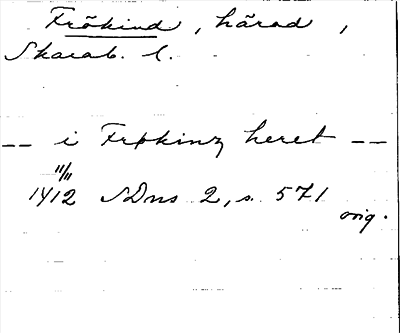 Frökind, härad,
Skarab. l.
-- i Frøkinz heret --
11/11
1412 SDns 2, s. 571
orig.